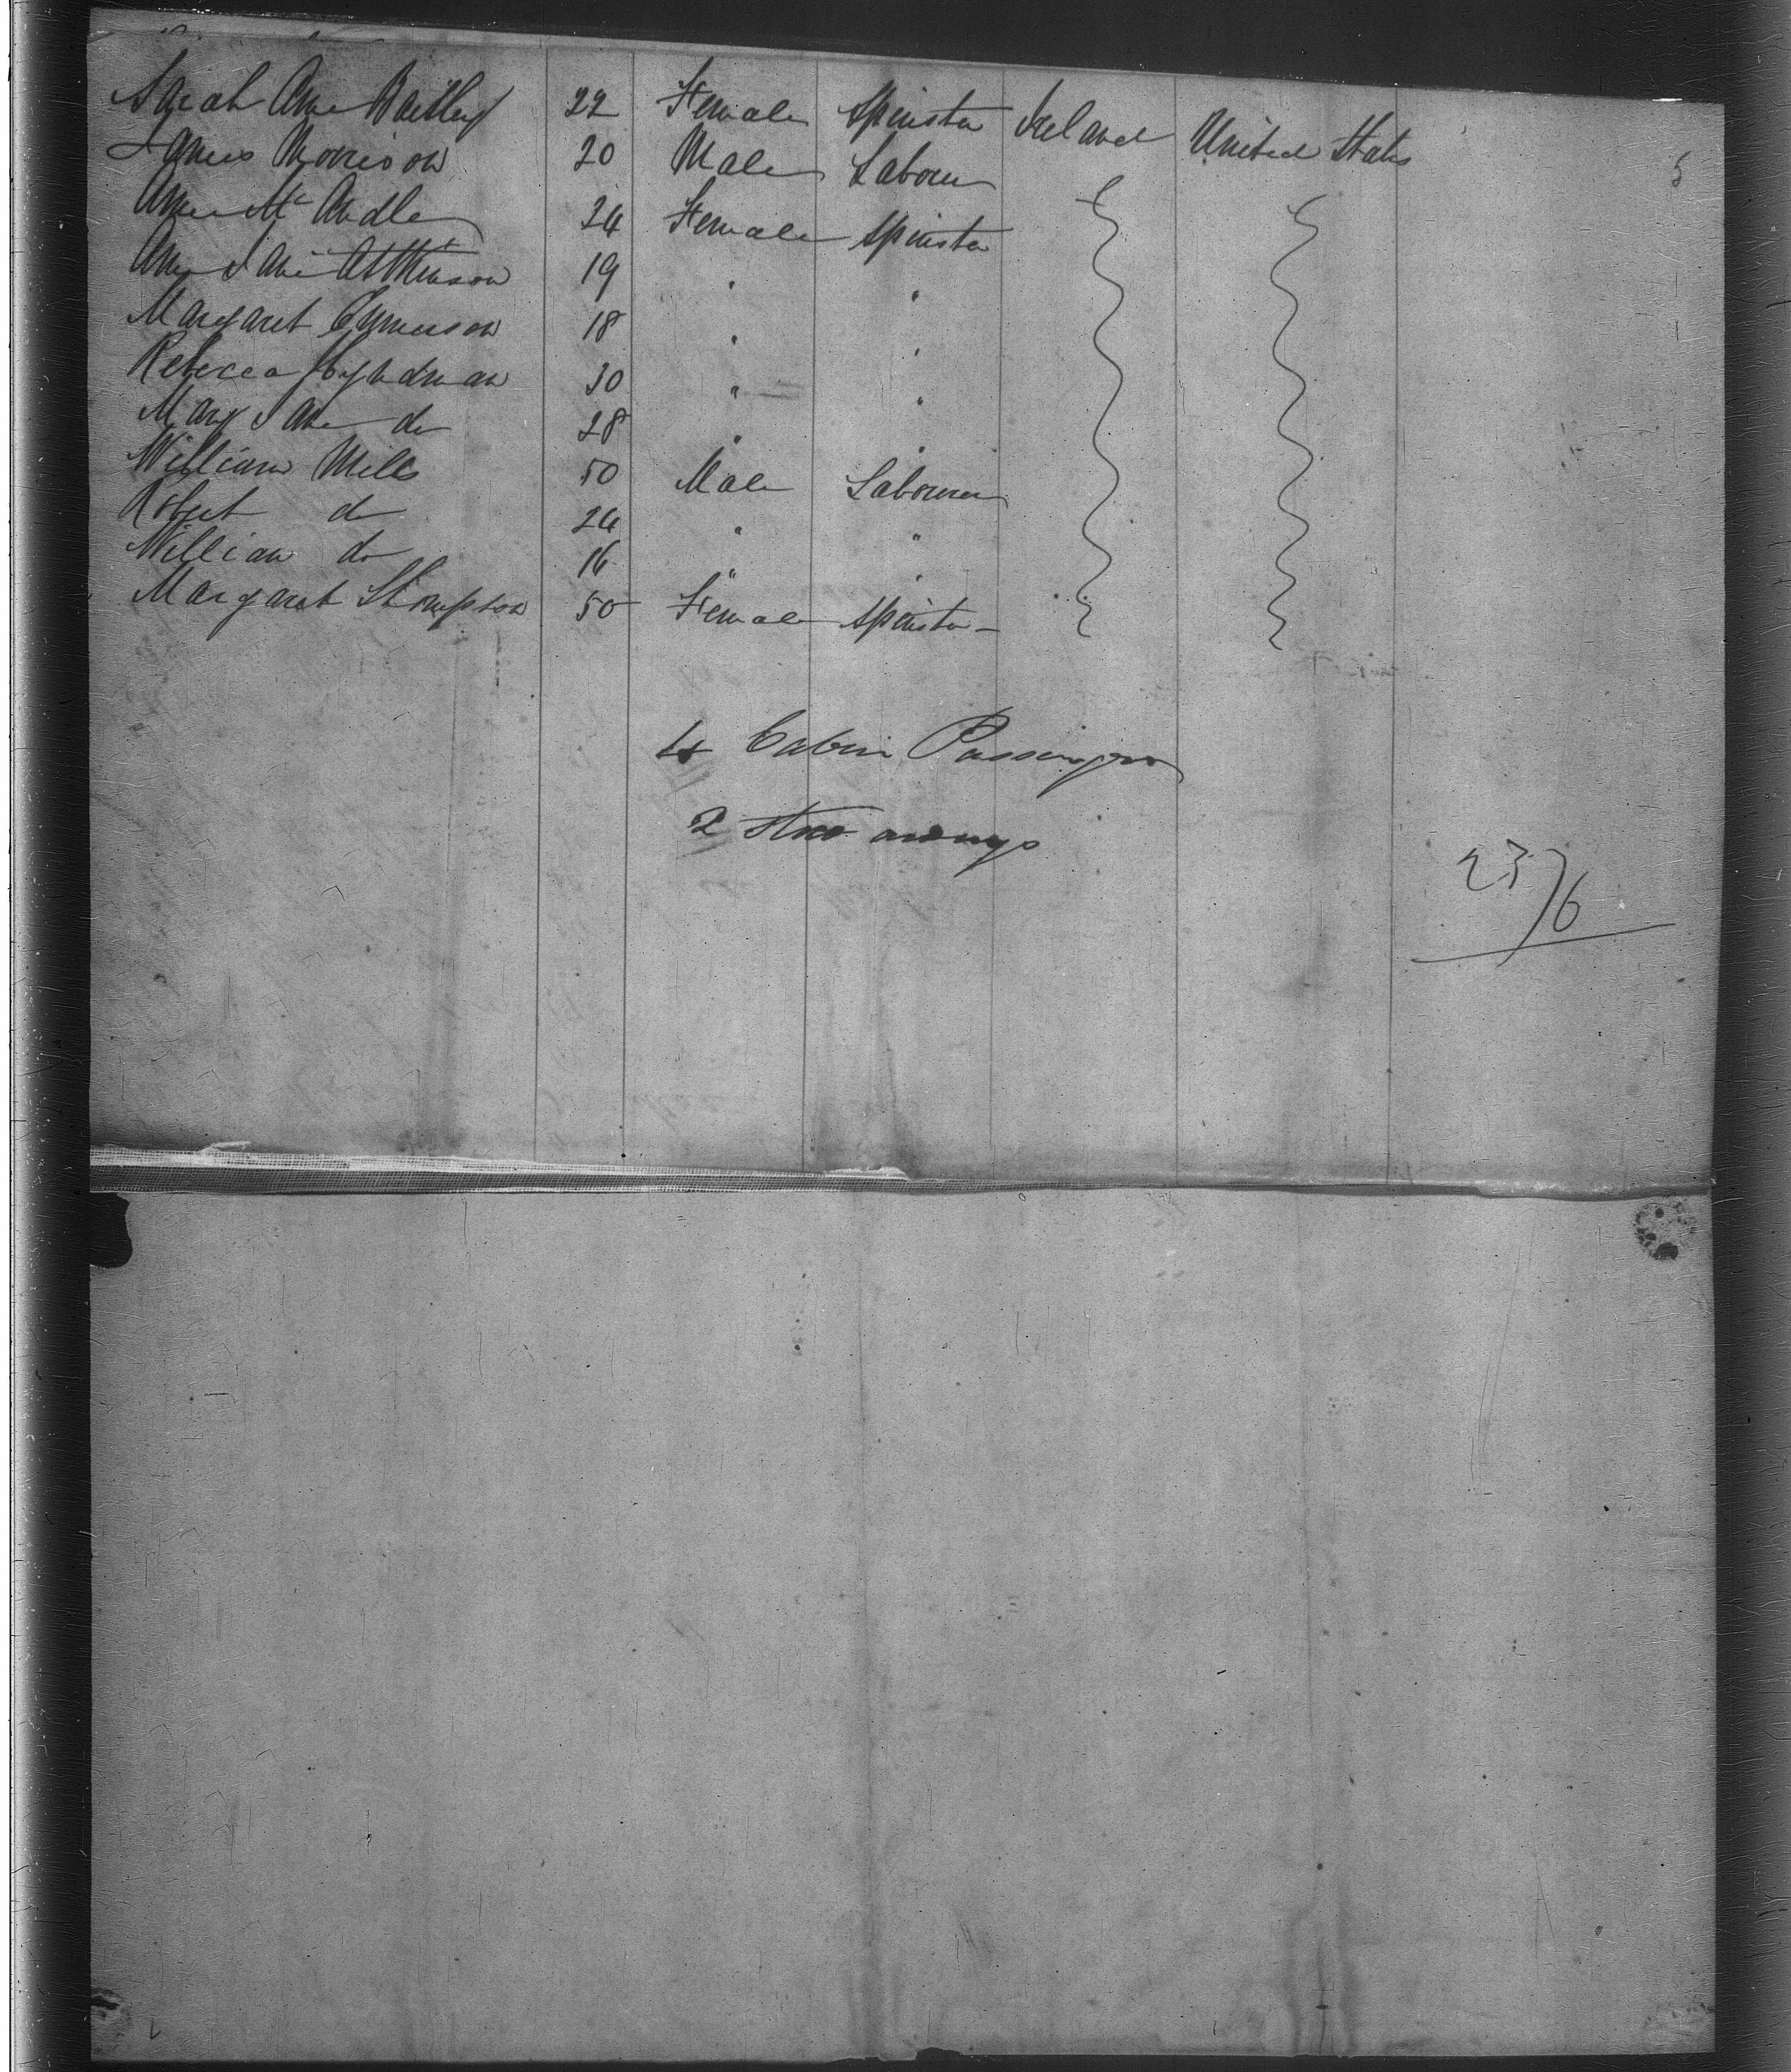 Sarah Ann Bailley 22 Female Spinster Ireland United States
James Morrison 20 Male Labourer
Ann Mc Ardle 24 Female Spinster
Ann Jane Atkinson 19 " "
Margaret 18 " "
Rebecca Hyndman 30 " "
Mary Jane do 28 " "
William Mills 50 Male Labourer
Robert do 24 " "
William do 16 " "
Margaret Simpson 50 Female Spinster
4 Cabin Passengers
2
23/6